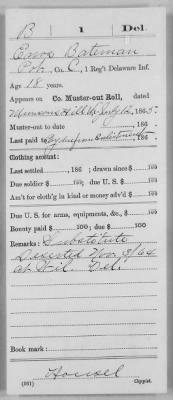 B 1 Del.
Enos Bateman
Pvt., Co. C, 1 Reg't Delaware Inf.
Age 18 years.
Appears on Co. Muster-out Roll, dated
Munsons Hill Va July 12, 1865.
Muster-out to date , 186 .
Last paid to
Clothing account:
Last settled , 186 ; drawn since $ 100
Due soldier $ 100; due U. S. $ 100
Am't for cloth'g in kind or money adv'd $ 100
Due U. S. for arms, equipments, &c., $ 100
Bounty paid $ 100; due $ 100
Remarks: Substitute
Deserted Nov 3/64
at Wil. Del.
Book mark:
Housel
(361) Copyist.